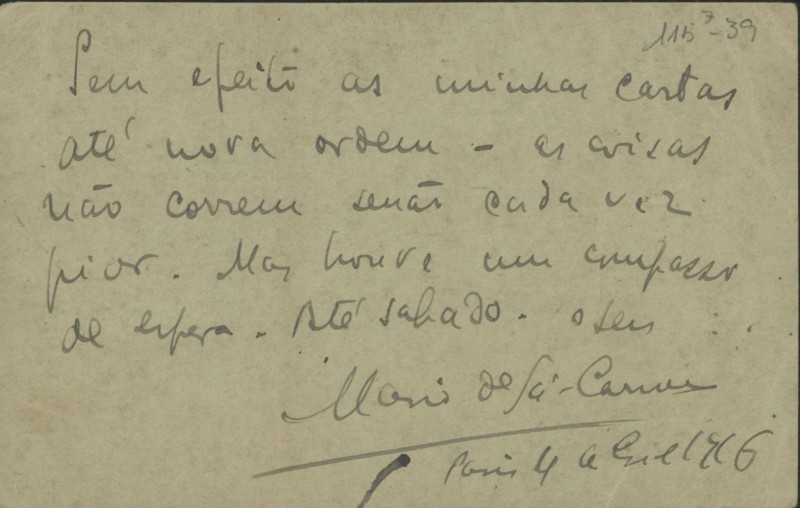 115⁷-39
Sem efeito as minhas cartas
até nova ordem - as coisas
não correm senão cada vez
pior. Mas houve um compasso
de espera. Até sabado. o seu
Mario de Sá-Carneiro
Paris 4 abril 1916